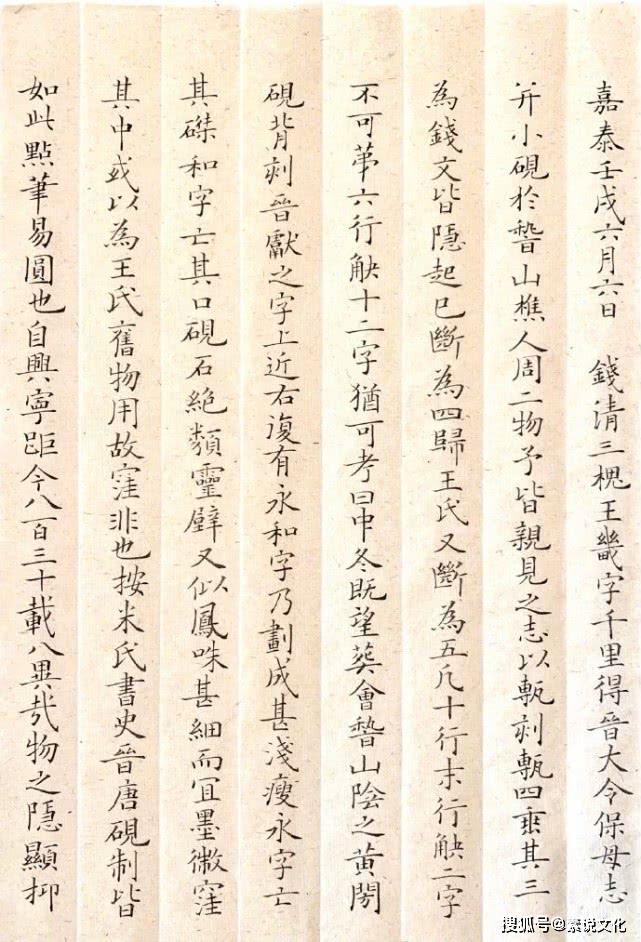 嘉泰壬戌六月六日 錢清三槐王畿字千里得晉大令保母志
并小硯於稽山樵人周二物予皆親見之志以甎刻甎四垂其三
為錢文皆隱起已斷為四歸王氏又斷為五凡十行末行缺二字
不可苐六行缺十二字猶可考曰中冬既望葬會稽山陰之黃閍
硯背刻晉獻之字上近右復有永和字乃劃成甚淺瘦永字亡
其磔和字亡其口硯石絕類靈壁又似鳳咮甚細而宜墨微窪
其中或以為王氏舊物用故窪非也按米氏書史晉唐硯制皆
如此點筆易圓也自興寧距今八百三十載八異哉物之隱顯抑
搜狐号@素说文化